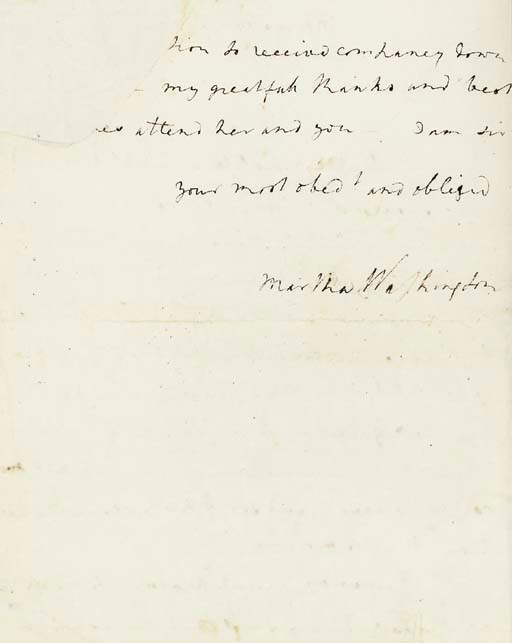 tion to received company down
my greatfull thanks and best
es attend her and you - I am sir
your most obedt and obliged
Martha Washington